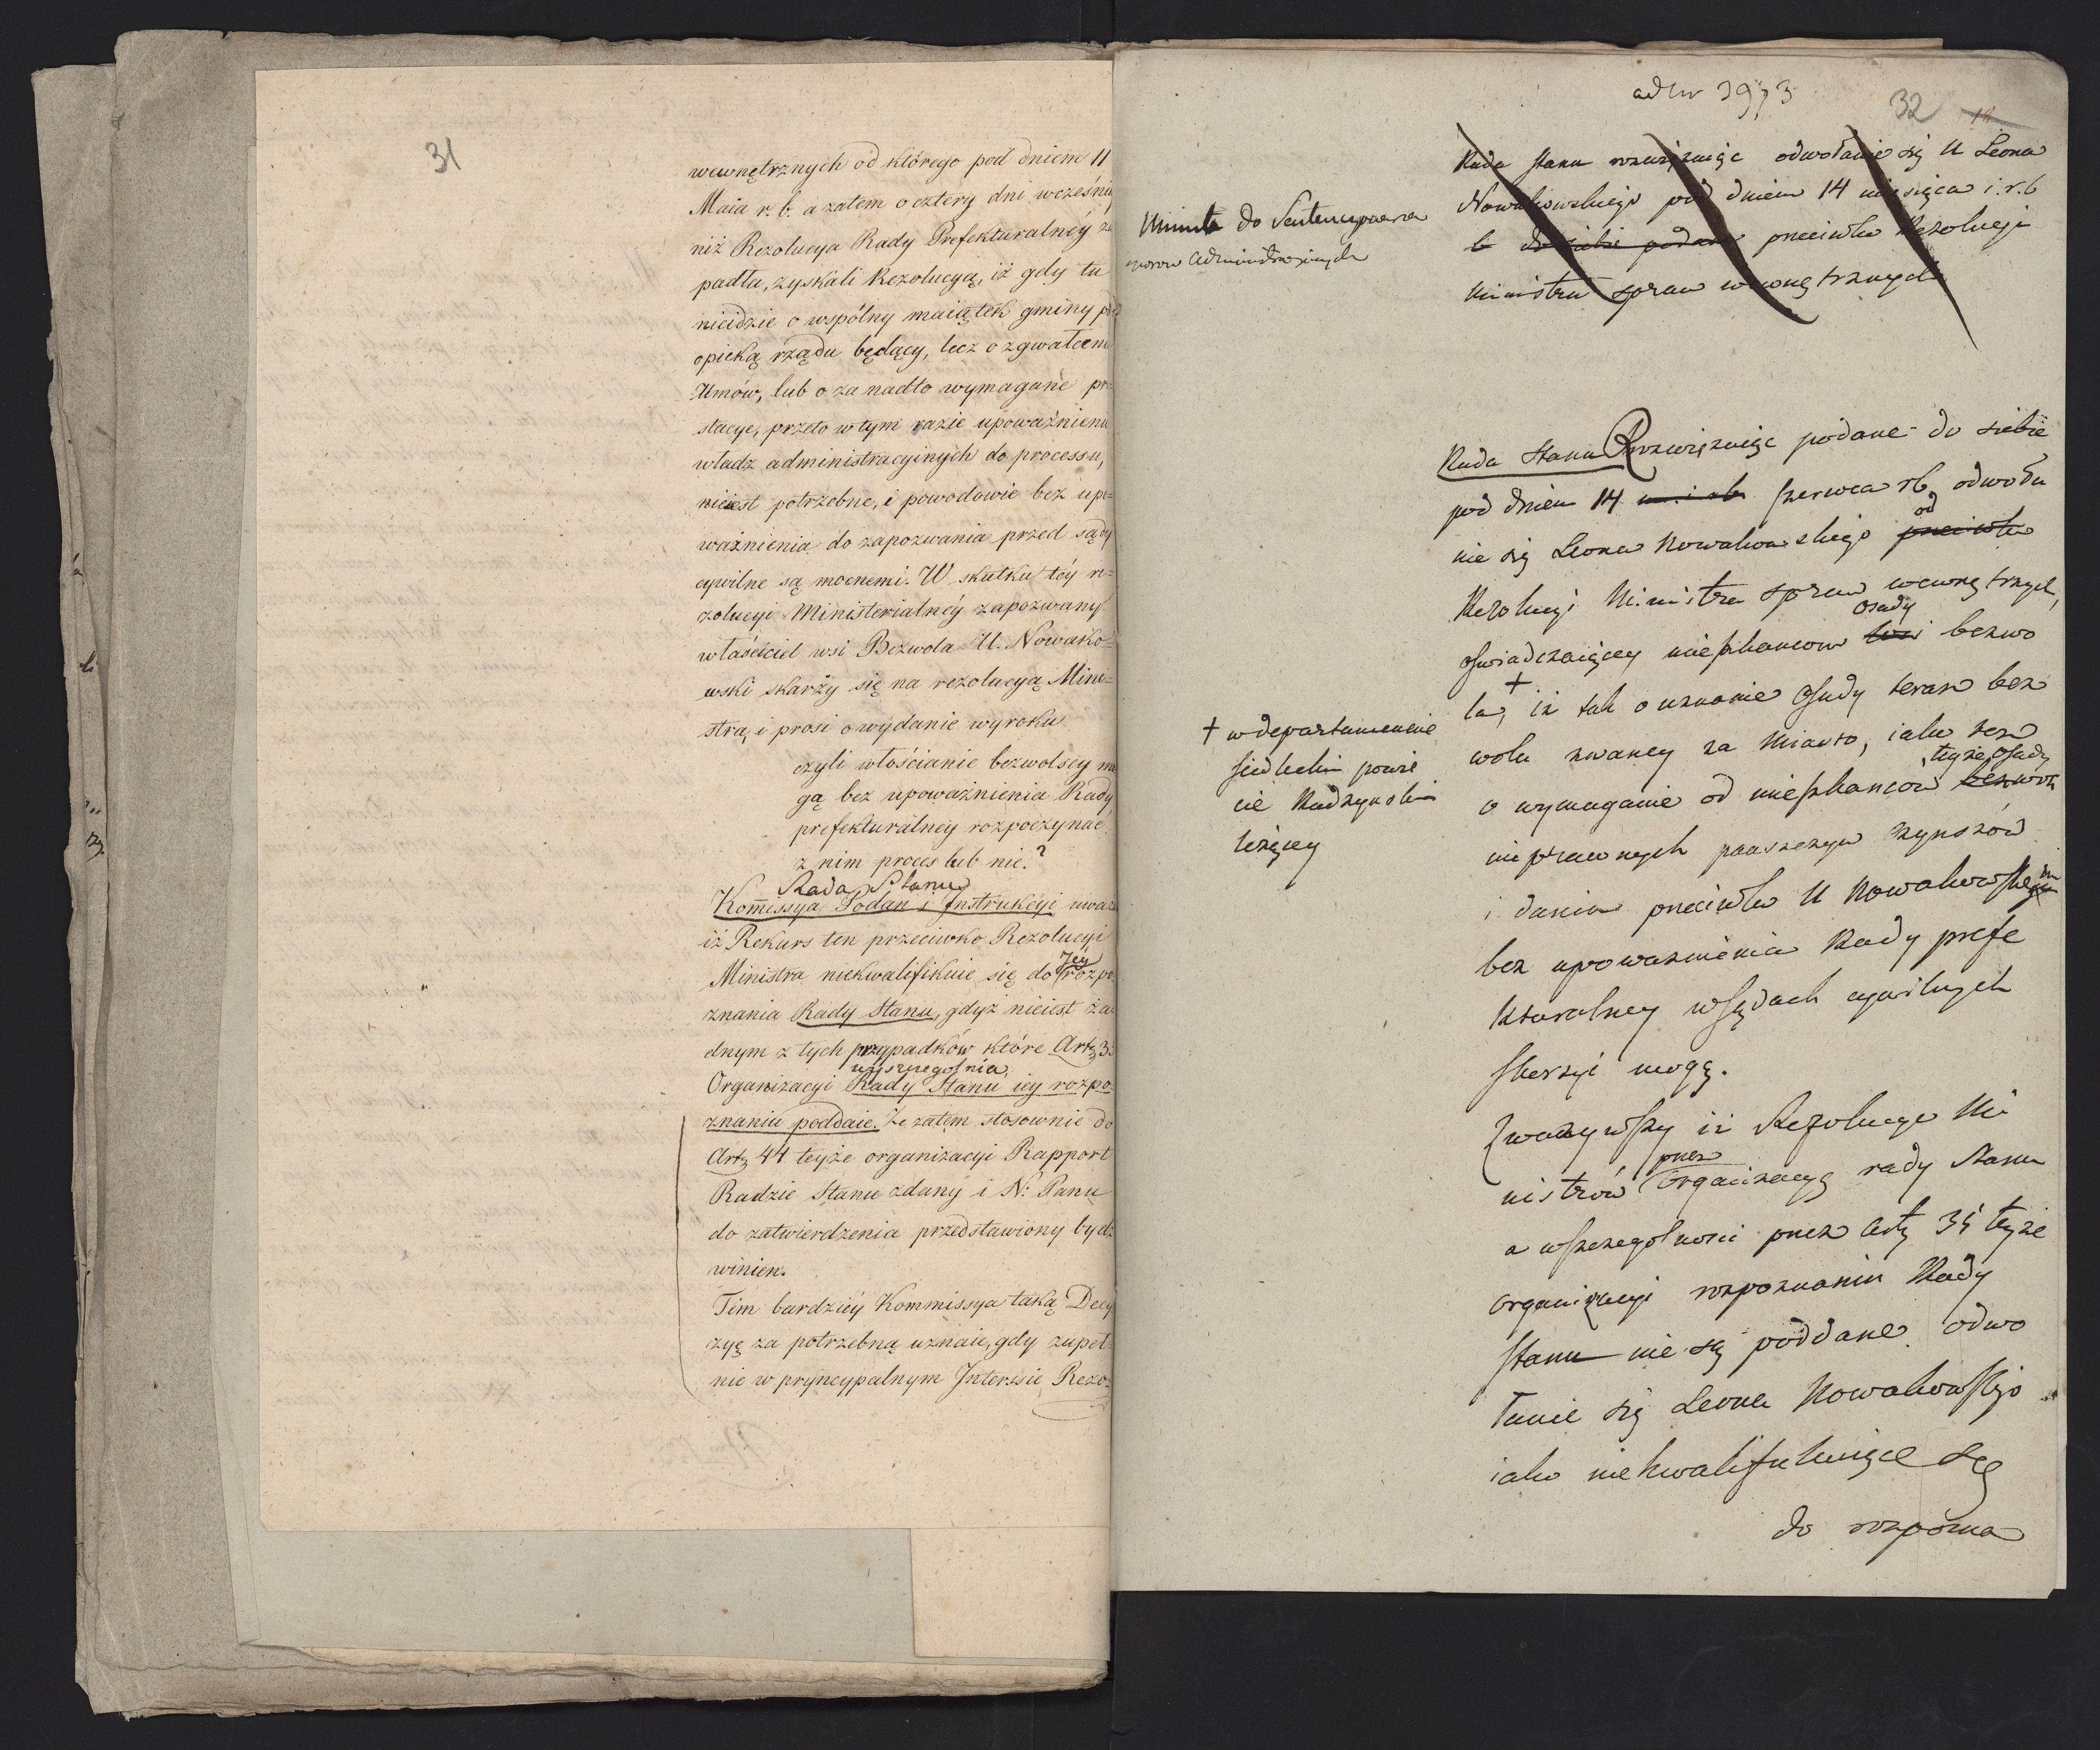 31
wewnętrznych od którego pod dniem 11
Maia r. b. a zatem o cztery dni wcześniéy
niż Rezolucya Rady Prefekturalnéy za
padła, zyskali Rezolucyą, iż gdy tu
nieidzie o wspólny maiątek gminy pod
opieką rządu będący, lecz o zgwałceni
Umów, lub o za nadto wymagane pre=
stacye, przeto w tym razie upoważnieni
władz administracyinych do processu,
nieiest potrzebne, i powodowie bez upo=
ważnienia do zapozwania przed sądy
cywilne są mocnemi. W skutku téy re=
zolucyi Ministerialnéy zapozwany
właściciel wsi Bezwola U. Nowako=
wski skarży się na rezolucyą Mini=
stra, i prosi o wydanie wyroku
czyli włościanie bezwolscy mo
gą bez upoważnienia Rady
prefekturalnéy rozpoczynać
z nim proces lub nie?
Rada Stanu
Kommissya Podań i Instrukcyi uważa
iż Rekurs ten przeciwko Rezolucyi
Jey
Ministra niekwalifikuie się do rozpo
znania Rady Stanu, gdyż nieiest ża=
dnym z tych przypadków które Arty 35
uszczegolnia
Organizacyi Rady Stanu iey rozpo
znaniu poddaie. Że zatem stosownie do
Arty 44 teyże organizacyi Rapport
Radzie Stanu zdany i N: Panu
do zatwierdzenia przedstawiony bydź
winien.
Tim bardziéy Kommissya taką Decy
zyę za potrzebną uznaie, gdy zupeł=
nie w pryncypalnym Interssie Rezo=
ad Nr 3973
32 18
Rada Stanu rozwiązuiąc odwołanie się U Leona
Nowakowskiego pod dniem 14 miesiąca i. r. b
b do siebie podane przeciwko Rezolucyi
Ministra spraw wewnętrznych
Minuta do Sentencyonarza
sporow Administracyinych
Rada Stanu Rozwiązuiąc podane do siebie
pod dniem 14 m. i. rb Czerwca rb odwoła
od
nie się Leona Nowakowskiego przeciwko
Rezolucyi Ministra spraw wewnętrznych,
osady
oświadczaiącey mieszkancom wsi bezwo
+
la, iż tak o uznanie Osady teraz bez
wola zwaney za Miasto, iako też
teyże Osady
o wymaganie od mieszkancow bezwoli
nieprawnych panszczyn czynszów
i danin przeciwko U Nowakowskiemu
bez upoważnienia Rady prefe
kturalney w Sądach cywilnych
skarżyć mogą.
+ w departamencie
Siedleckim powie
cie Radzynskim
leżącey
Zważywszy iż Rezolucye Mi
przez
nistrów Organizacyą rady Stanu
a wszczegolności przez Arty 35 teyże
organizacyi rozpoznaniu Rady
Stanu nie są poddane odwo
łanie się Leona Nowakowskiego
iako niekwalifikuiące się
do rozpozna